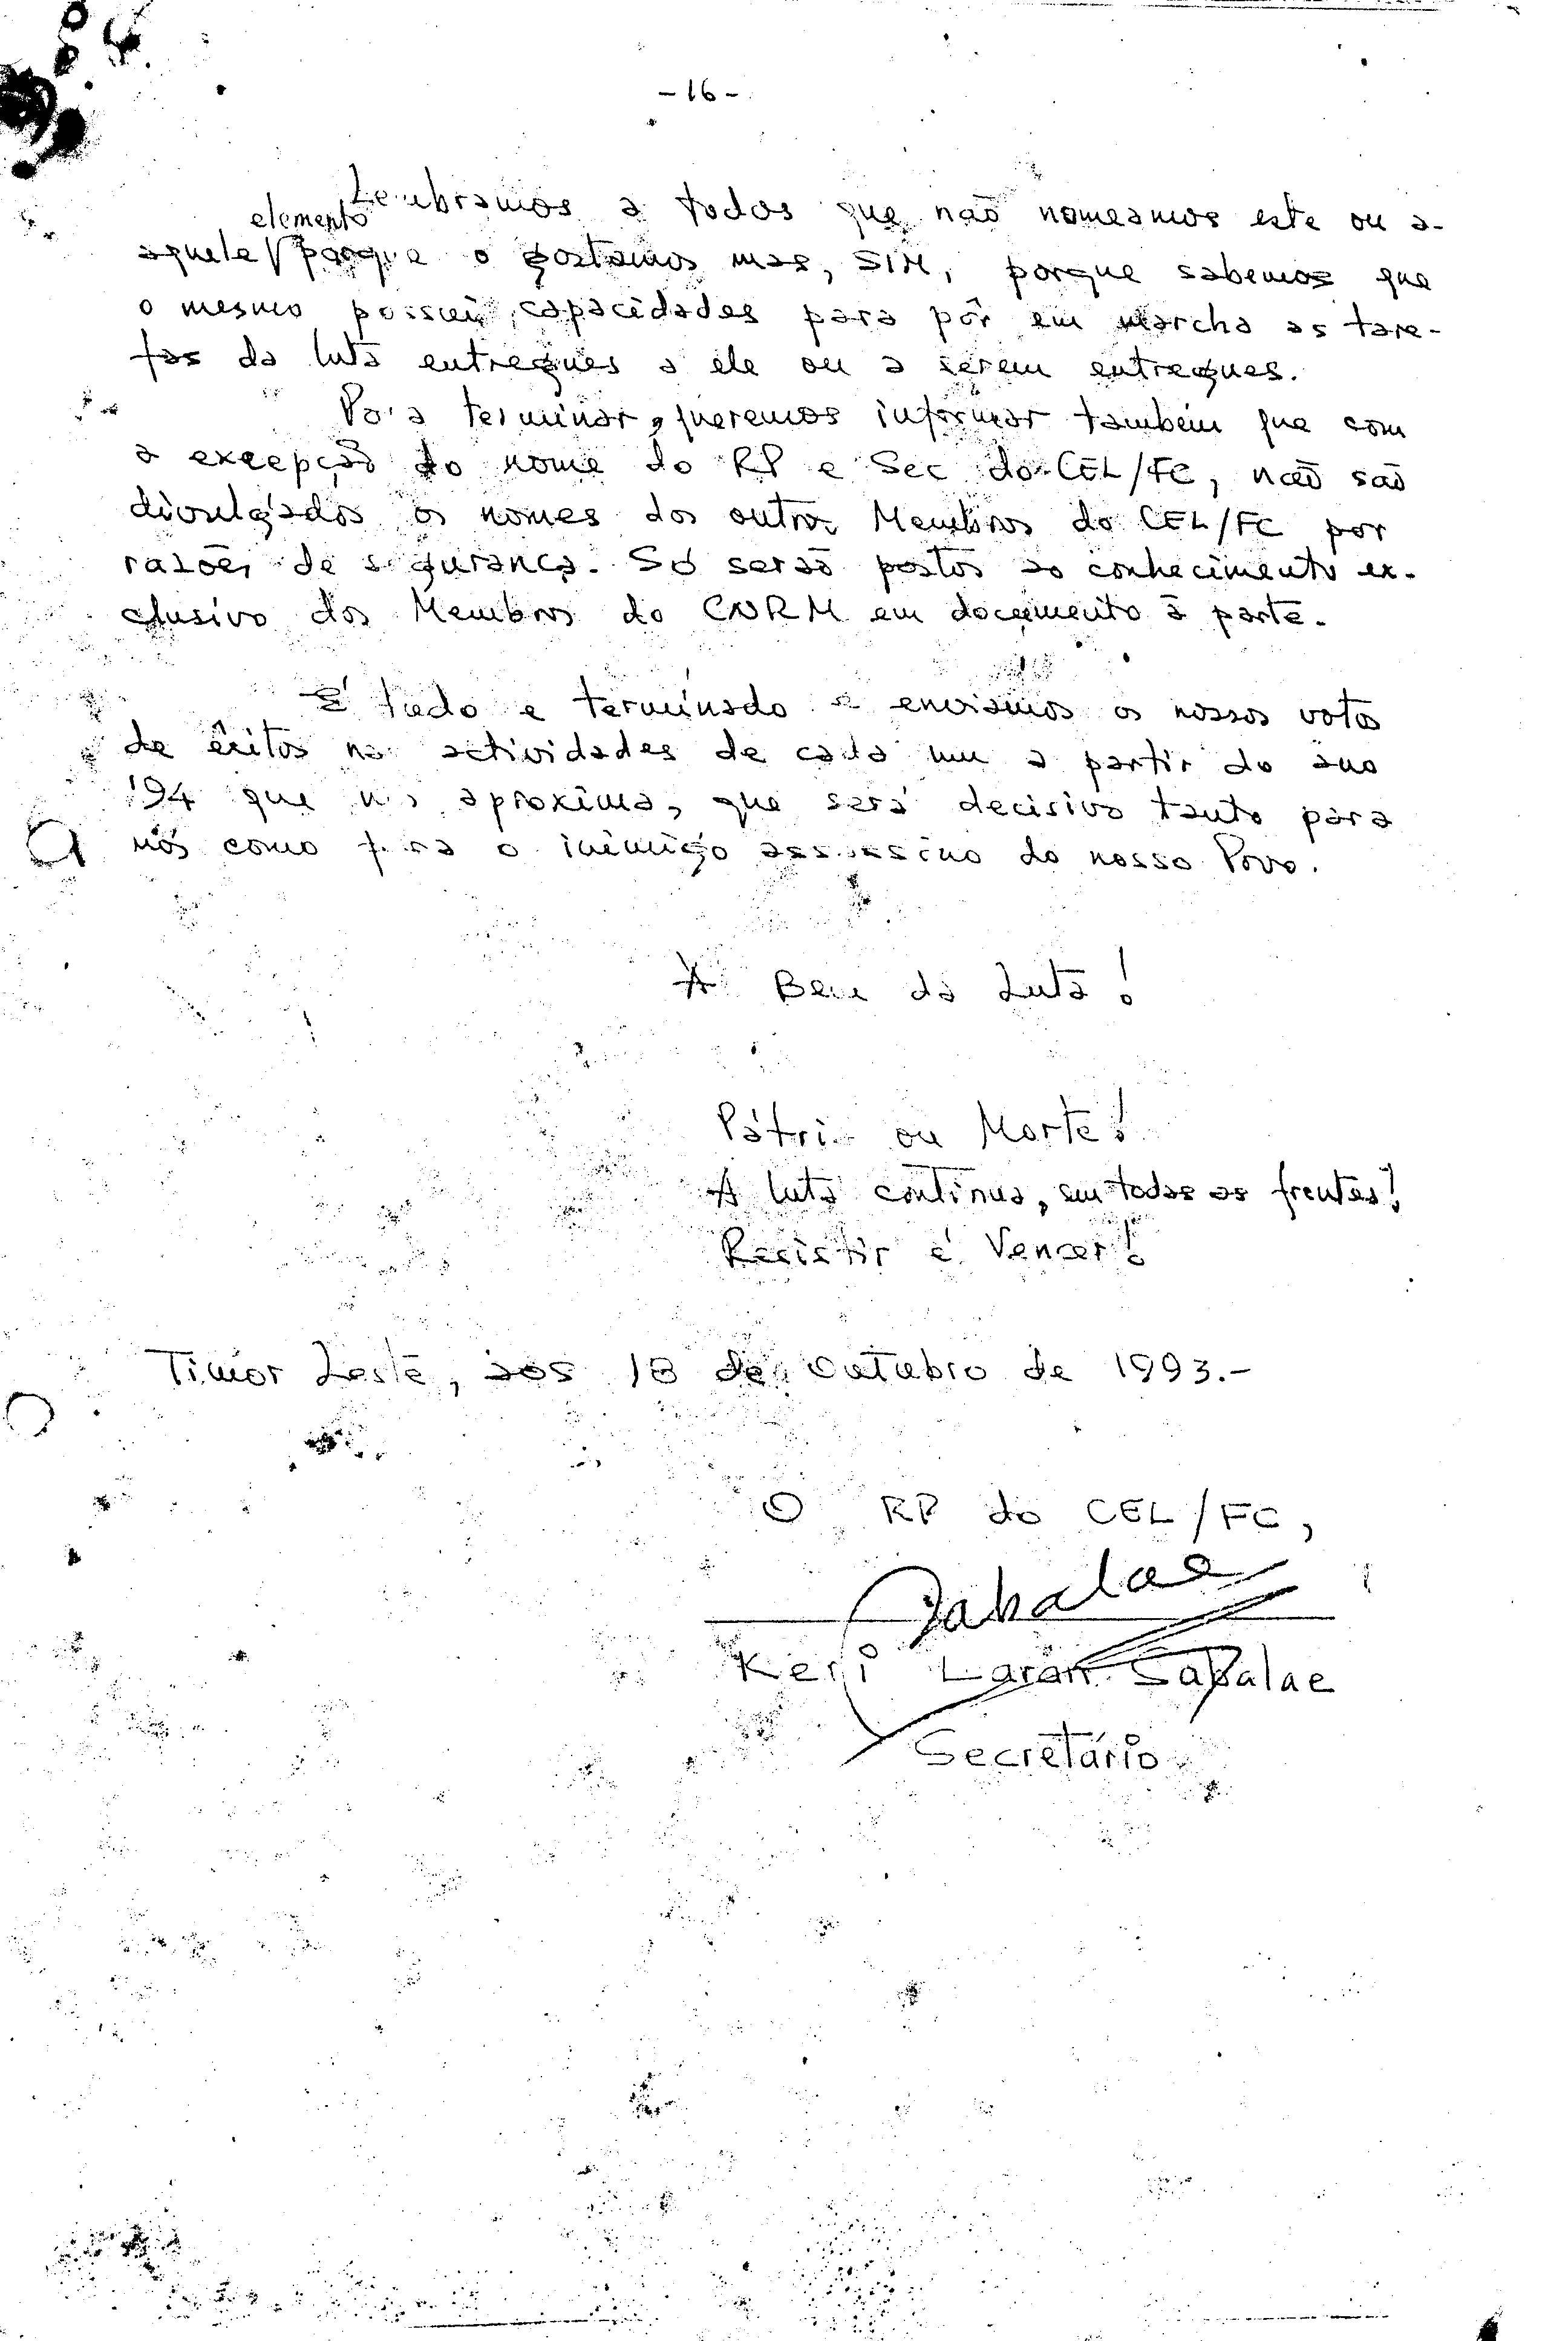 - 16 -
Lembramos a todos que não nomeamos este ou a-
elemento
aquele porque o gostamos mas, SIM, porque sabemos que
o mesmo possui capacidades para pôr em marcha as tare-
fas da luta entregues a ele ou a serem entregues.
Para terminar, queremos informar também que com
a excepção do nome do RP e Sec do CEL/FC, não são
divulgados os nomes dos outros Membros do CEL/FC por
razões de segurança. Só serão postos ao conhecimento ex-
clusivo dos Membros do CNRM em documento à parte.
É tudo e terminado enviamos os nossos votos
de êxitos nas actividades de cada um a partir do ano
'94 que nos aproxima, que será decisivo tanto para
nós como para o inimigo assassino do nosso Povo.
A Bem da Luta!
Pátria ou Morte!
A luta continua, em todas as frentes!
Resistir é Vencer!
Timor Leste, aos 18 de Outubro de 1993.-
O RP do CEL/FC,
Sabalae
Keri Laran Sabalae
Secretário